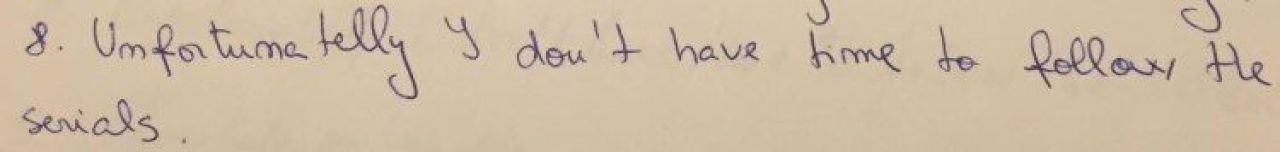 8. Unfortunatelly I don't have time to follow the
serials.